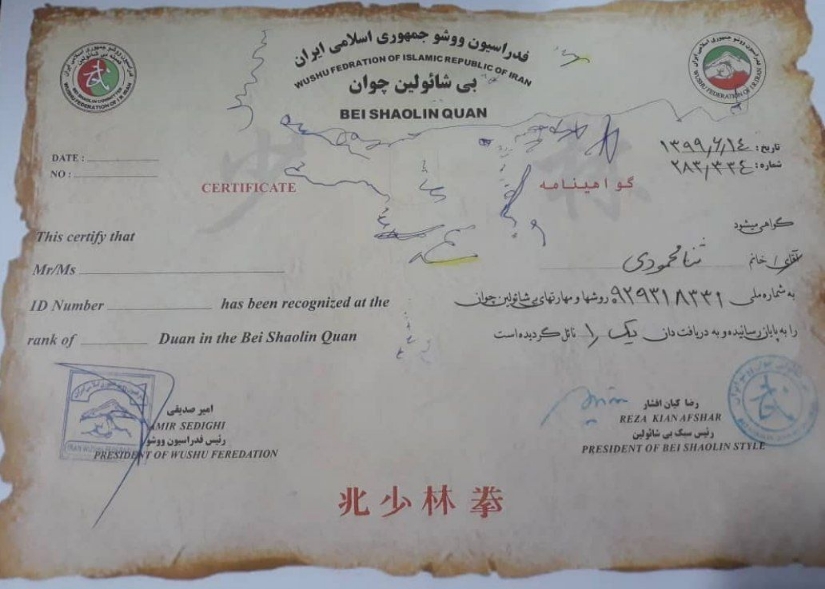 فدراسیون ووشو جمهوری اسلامی ایران
WUSHU FEDRATION OF ISLAMIC REPUBLIC OF IRAN
بی شائولین چوان
BEI SHAOLIN QUAN
تاریخ: ۱۳۹۹/۶/۱۴
شماره: ۲۸۳/۳۳۴
DATE :
NO :
CERTIFICATE
گواهینامه
This certify that
گواهی میشود
Mr/Ms
آقای/خانم ثنا محمودی
ID Number has been recognized at the
به شماره ملی ۰۹۲۹۳۱۸۳۳۱ روشها و مهارتهای بی شائولین چوان
rank of Duan in the Bei Shaolin Quan
را به پایان رسانیده و به دریافت دان یک را نائل گردیده است
امیر صدیقی
AMIR SEDIGHI
رئیس فدراسیون ووشو
PRESIDENT OF WUSHU FEREDATION
رضا کیان افشار
REZA KIANAFSHAR
رئیس سبک بی شائولین
PRESIDENT OF BEI SHAOLIN STYLE
北少林拳